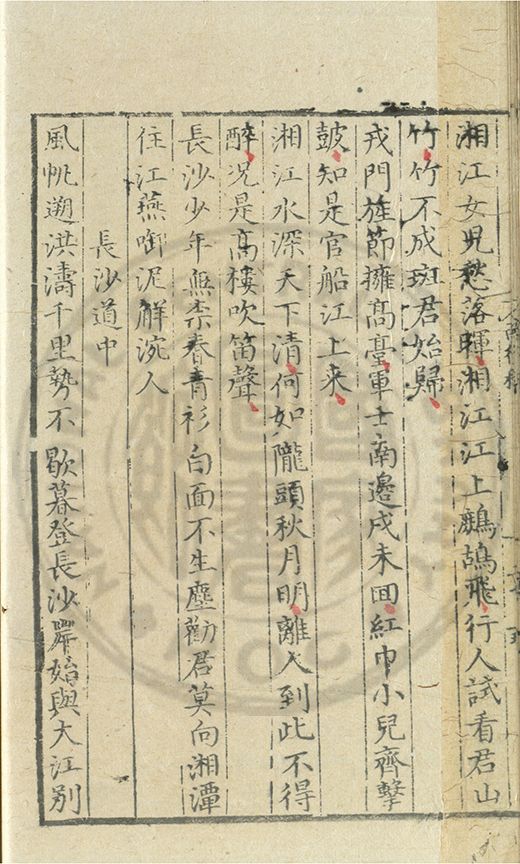 湘江女兒愁落暉湘江江上鷓鴣飛行人試看君山
竹竹不成斑君始歸
戎門旌節擁髙臺軍士南邊戍未回紅巾小兒齊擊
鼓知是官船江上来
湘江水深天下清何如隴頭秋月明離人到此不得
醉况是髙樓吹笛聲
長沙少年無柰春青衫白面不生塵勸君莫向湘潭
住江燕啣泥解涴人
長沙道中
風帆遡洪濤千里勢不歇暮登長沙岸始與大江别